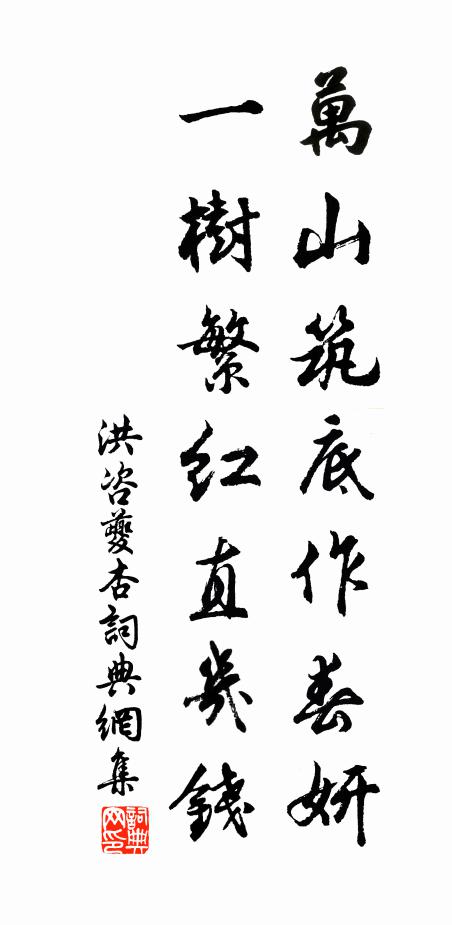 萬山筑底作春妍
一樹繁紅直幾錢
洪咨夔杏詞典網集
詞典網印